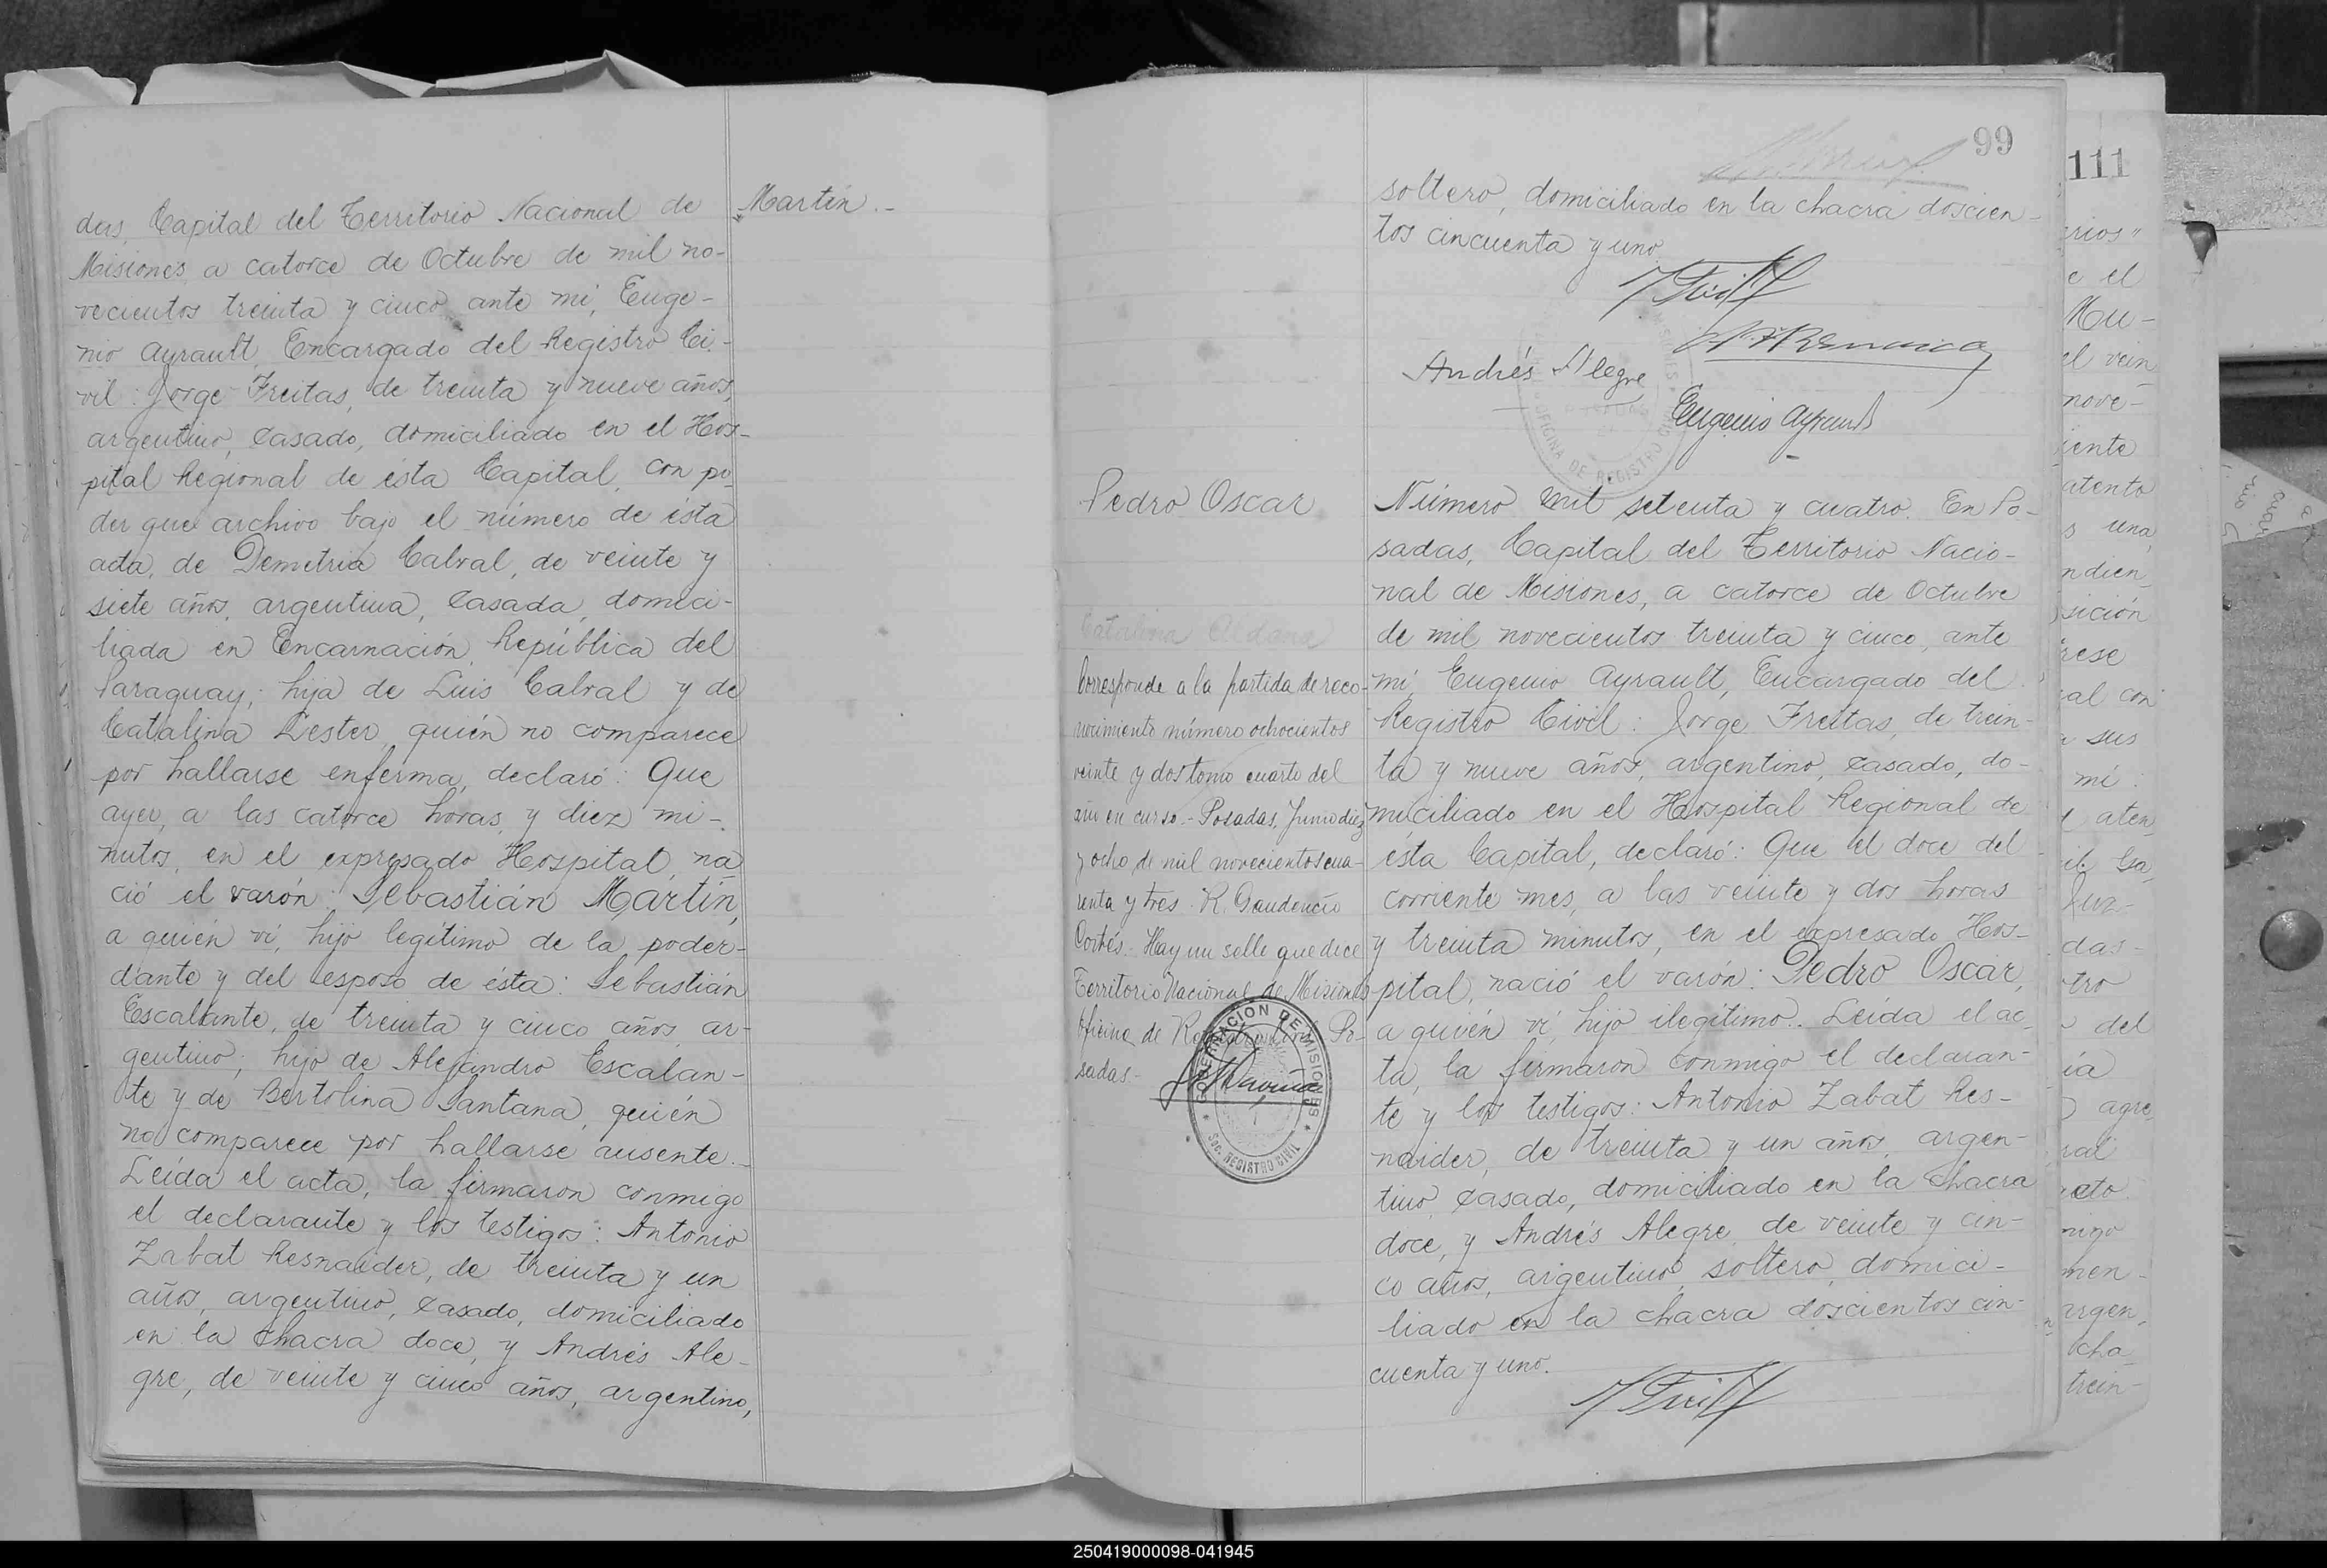 das, Capital del Territorio Nacional de
Misiones, a catorce de Octubre de mil no-
vecientos treinta y cinco, ante mí, Euge-
nio Ayrault, Encargado del Registro Ci-
vil: Jorge Freitas, de treinta y nueve años,
argentino, casado, domiciliado en el Hos-
pital Regional de ésta Capital, con po-
der que archivo bajo el número de ésta
acta, de Demetria Cabral, de veinte y
siete años, argentina, casada, domici-
liada en Encarnación, República del
Paraguay; hija de Luis Cabral y de
Catalina Lester, quién no comparece
por hallarse enferma, declaró: Que
ayer, a las catorce horas y diez mi-
nutos, en el expresado Hospital, na-
ció el varón: Sebastián Martín,
a quién ví, hijo legítimo de la poder-
dante y del esposo de ésta: Sebastián
Escalante, de treinta y cinco años, ar-
gentino; hijo de Alejandro Escalan-
te y de Bertolina Santana, quién
no comparece por hallarse ausente.-
Leída el acta, la firmaron conmigo
el declarante y los testigos: Antonio
Zabat Resnaider, de treinta y un
años, argentino, casado, domiciliado
en la chacra doce, y Andrés Ale-
gre, de veinte y cinco años, argentino,
Martín.-
99
soltero, domiciliado en la chacra doscien-
tos cincuenta y uno.
Andrés Alegre
Eugenio Ayrault
OFICINA DE REGISTRO CIVIL
Pedro Oscar
Catalina Aldana
Corresponde a la partida de reco-
nocimiento número ochocientos
veinte y dos tomo cuarto del
año en curso.- Posadas, Junio diez
y ocho de mil novecientos cua-
renta y tres. R. Gaudencio
Cortés. Hay un sello que dice
Territorio Nacional de Misiones
Oficina de Registro Civil Po-
sadas-
GOBERNACION DE MISIONES
SEC. REGISTRO CIVIL
Número mil setenta y cuatro. En Po-
sadas, Capital del Territorio Nacio-
nal de Misiones, a catorce de Octubre
de mil novecientos treinta y cinco, ante
mí, Eugenio Ayrault, Encargado del
Registro Civil: Jorge Freitas, de trein-
ta y nueve años, argentino, casado, do-
miciliado en el Hospital Regional de
ésta Capital, declaró: Que el doce del
corriente mes, a las veinte y dos horas
y treinta minutos, en el expresado Hos-
pital, nació el varón: Pedro Oscar,
a quién ví, hijo ilegítimo. Leída el ac-
ta, la firmaron conmigo el declaran-
te y los testigos: Antonio Zabat Res-
naider, de treinta y un años, argen-
tino, casado, domiciliado en la chacra
doce, y Andrés Alegre, de veinte y cin-
co años, argentino, soltero, domici-
liado en la chacra doscientos cin-
cuenta y uno.
111
rios"
e el
Mu-
el vein
nove-
iente
atento
s una
ndien
sición
rese
al con
a sus
mi
aten
Juz-
das-
tro
del
ía
agre
ral
cto
migo
men-
argen,
cha
trein-
250419000098-041945